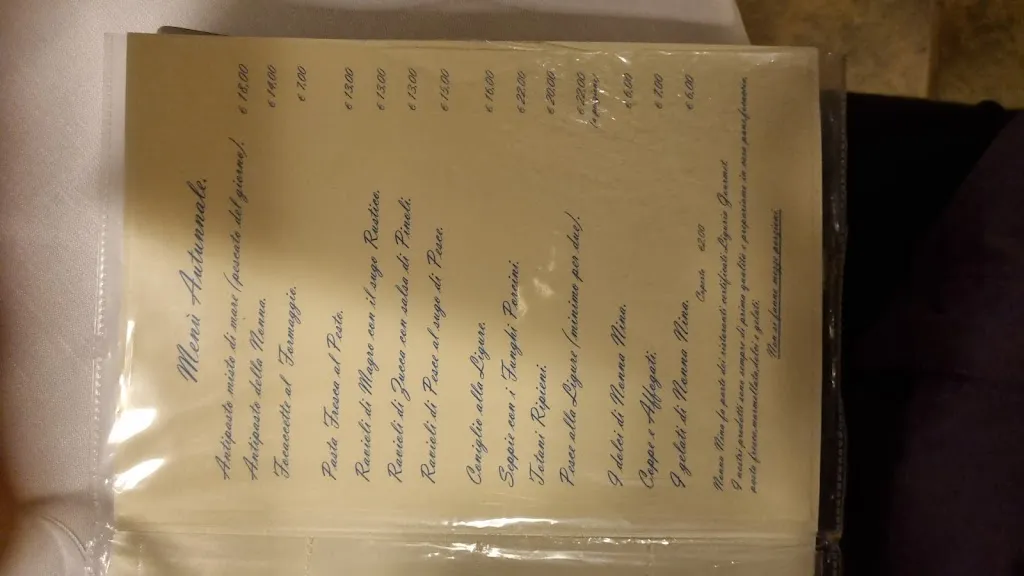 Menù Autunnale.
Antipasto misto di mare (pescato del giorno). € 18,00
Antipasto della Nonna. € 14,00
Focaccette al Formaggio. € 7,00
Pasta Fresca al Pesto. € 13,00
Ravioli di Magro con il sugo Rustico. € 13,00
Ravioli di Zucca con salsa di Pinoli. € 13,00
Ravioli di Pesce al sugo di Pesce. € 15,00
Coniglio alla Ligure. € 16,00
Seppie con i Funghi Porcini. € 22,00
Totani Ripieni. € 20,00
Pesce alla Ligure (minimo per due). € 22,00
a persona
I dolci di Nonna Nina. € 6,00
Coppe e Affogati. € 7,00
I gelati di Nonna Nina. € 6,00
Coperto €2,00
Nonna Nina fa parte dei ristoranti certificati Liguria Gourmet
I nostri prodotti sono sempre di prima qualità e prepariamo in casa pane, focaccia,
paste fresche, dolci e gelati.
Non si fanno mezze porzioni.